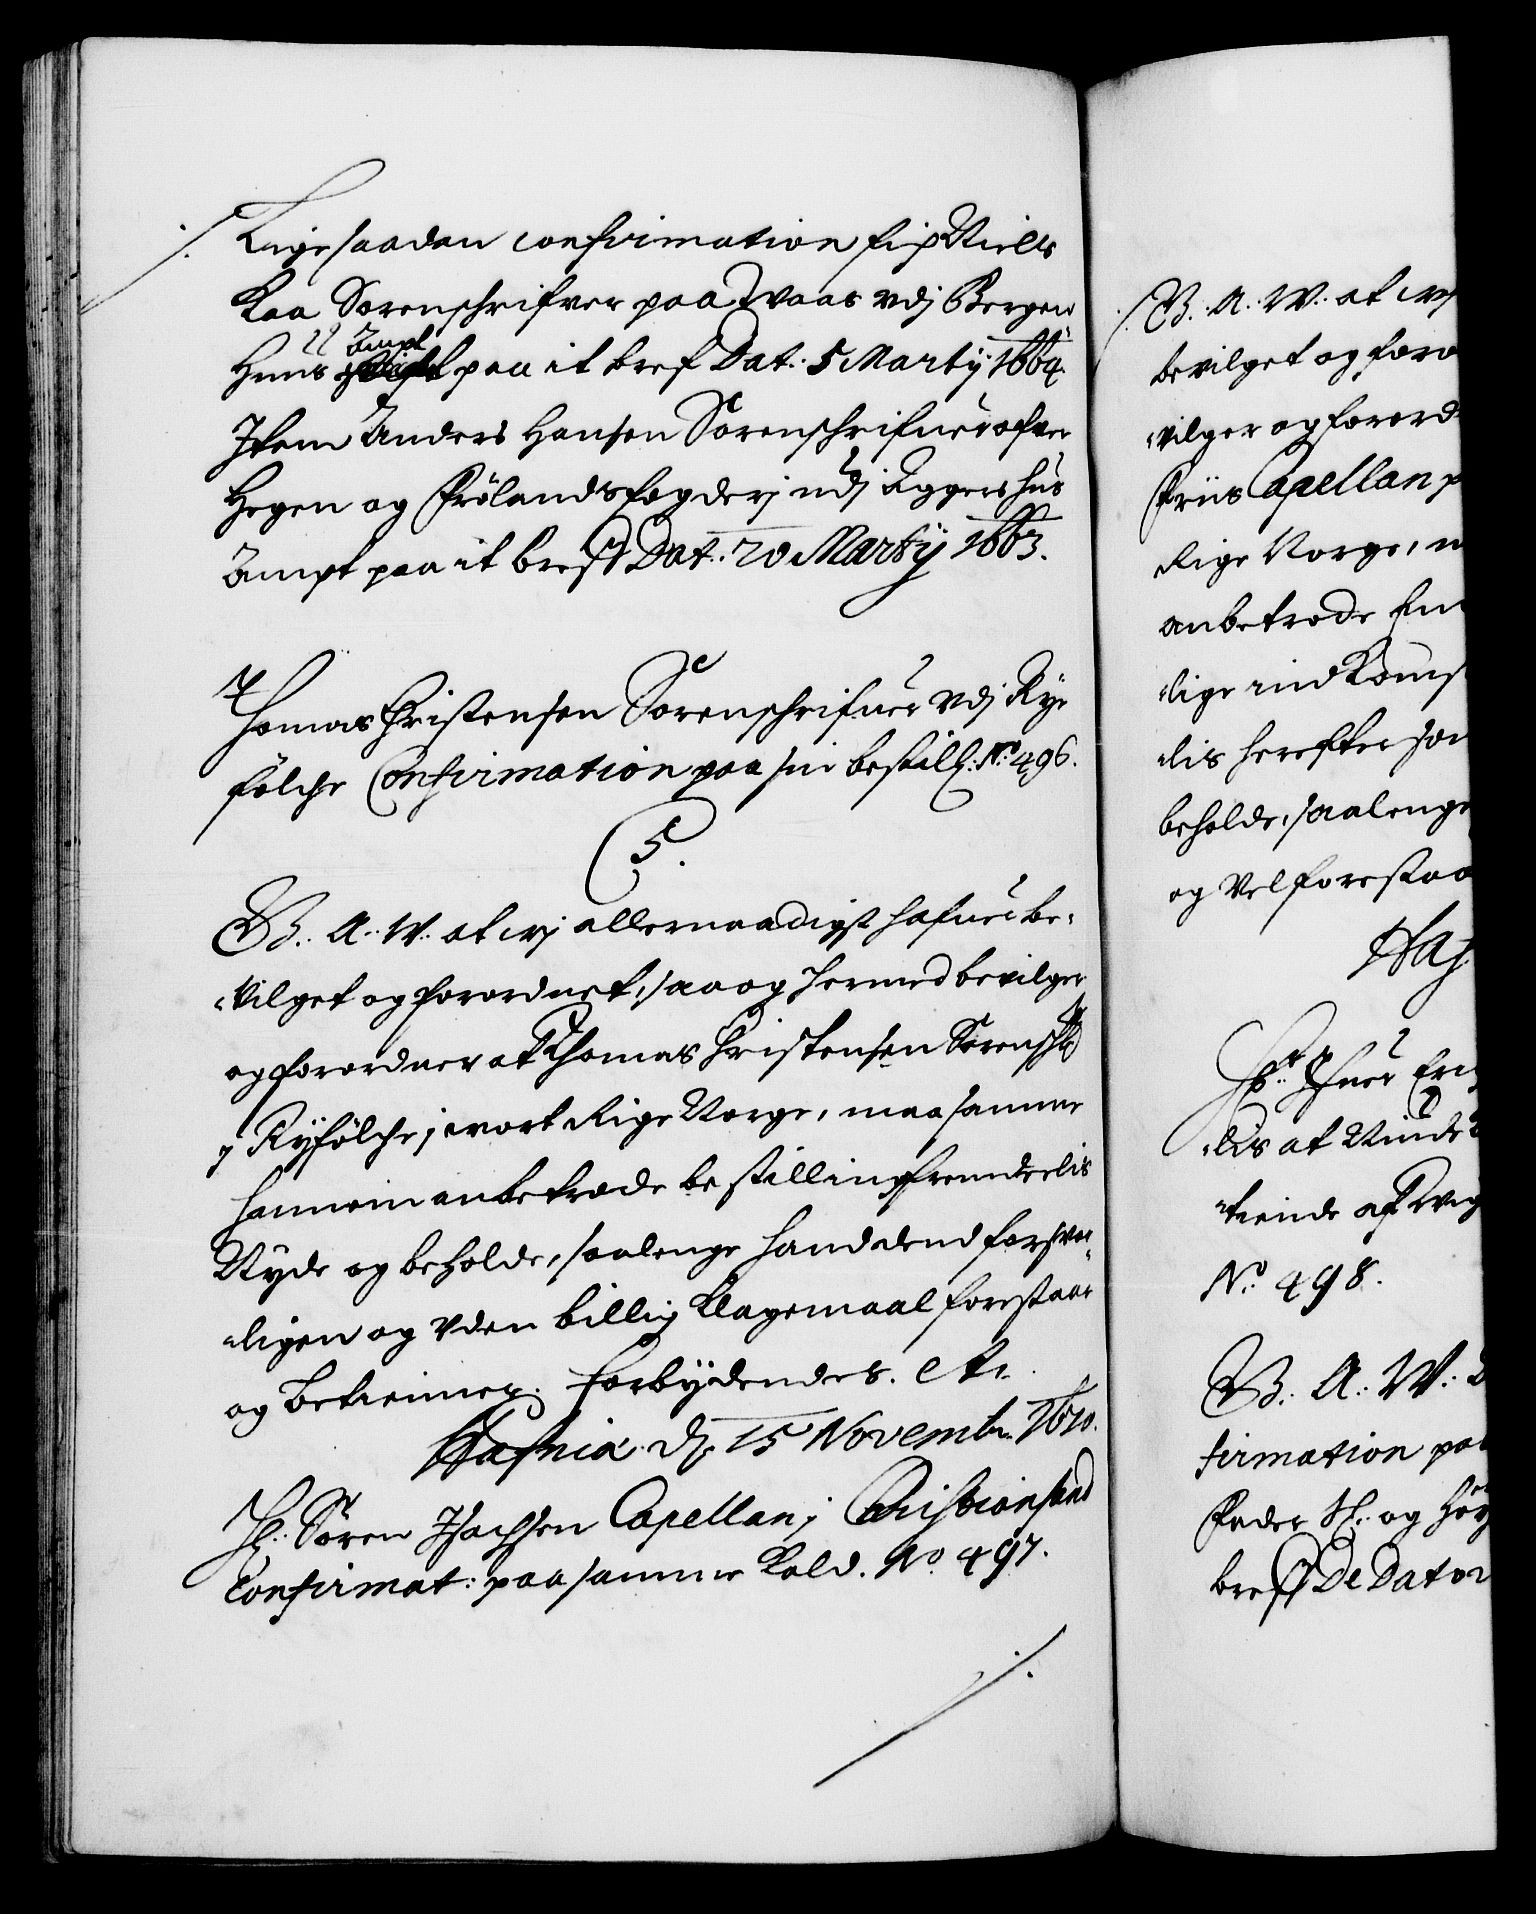 Lige saadan confirmation fik Niels
Kaa Sorenschrifver paa Waas udj Bergen
Huus Ampt paa it bref Dat: 5 Martij 1664.
Item Anders Hansen Sorenschrifuer ofver
Hegen og Frølands fogderj udj Aggershus
Ampt paa it breff Dat: 20 Martij 1663.
Thomas Christensen Sorenschrifuer udj Rye
følche Confirmation paa sin bestill: No: 496.
C 5.
G. A. W. at wj allernaadigst hafuer be-
vilget og forordnet, saa og hermed bevilger
og forordner at Thomas Christensen Sorenschr
j Ryfølche j wort Rige Norge, maa samme
hannem anbetrode bestilling fremdeelis
Nyde og beholde, saalenge hand dend forsvar-
ligen og uden billig Klagemaal forestaar
og betiener. Forbydendes. etc.
Hafniæ d. 15 Novembr. 1670.
Hr: Søren Isachsen Capellan j Christiansand
Confirmat: paa samme Kald. No 497.
G. A. W. at wj
bevilget og foror
vilger og forord
Friis Capellan p
Rige Norge, m
anbetrode Em
lige ind Komst
lis herefter som
beholde, saalenge
og vel forestaa
Haf
Hr: Ifuer Eri
lis at Nyde
tiende af
No: 498.
G. A. W. 
firmation paa
Fader Sl: og Høy
breff De Dato